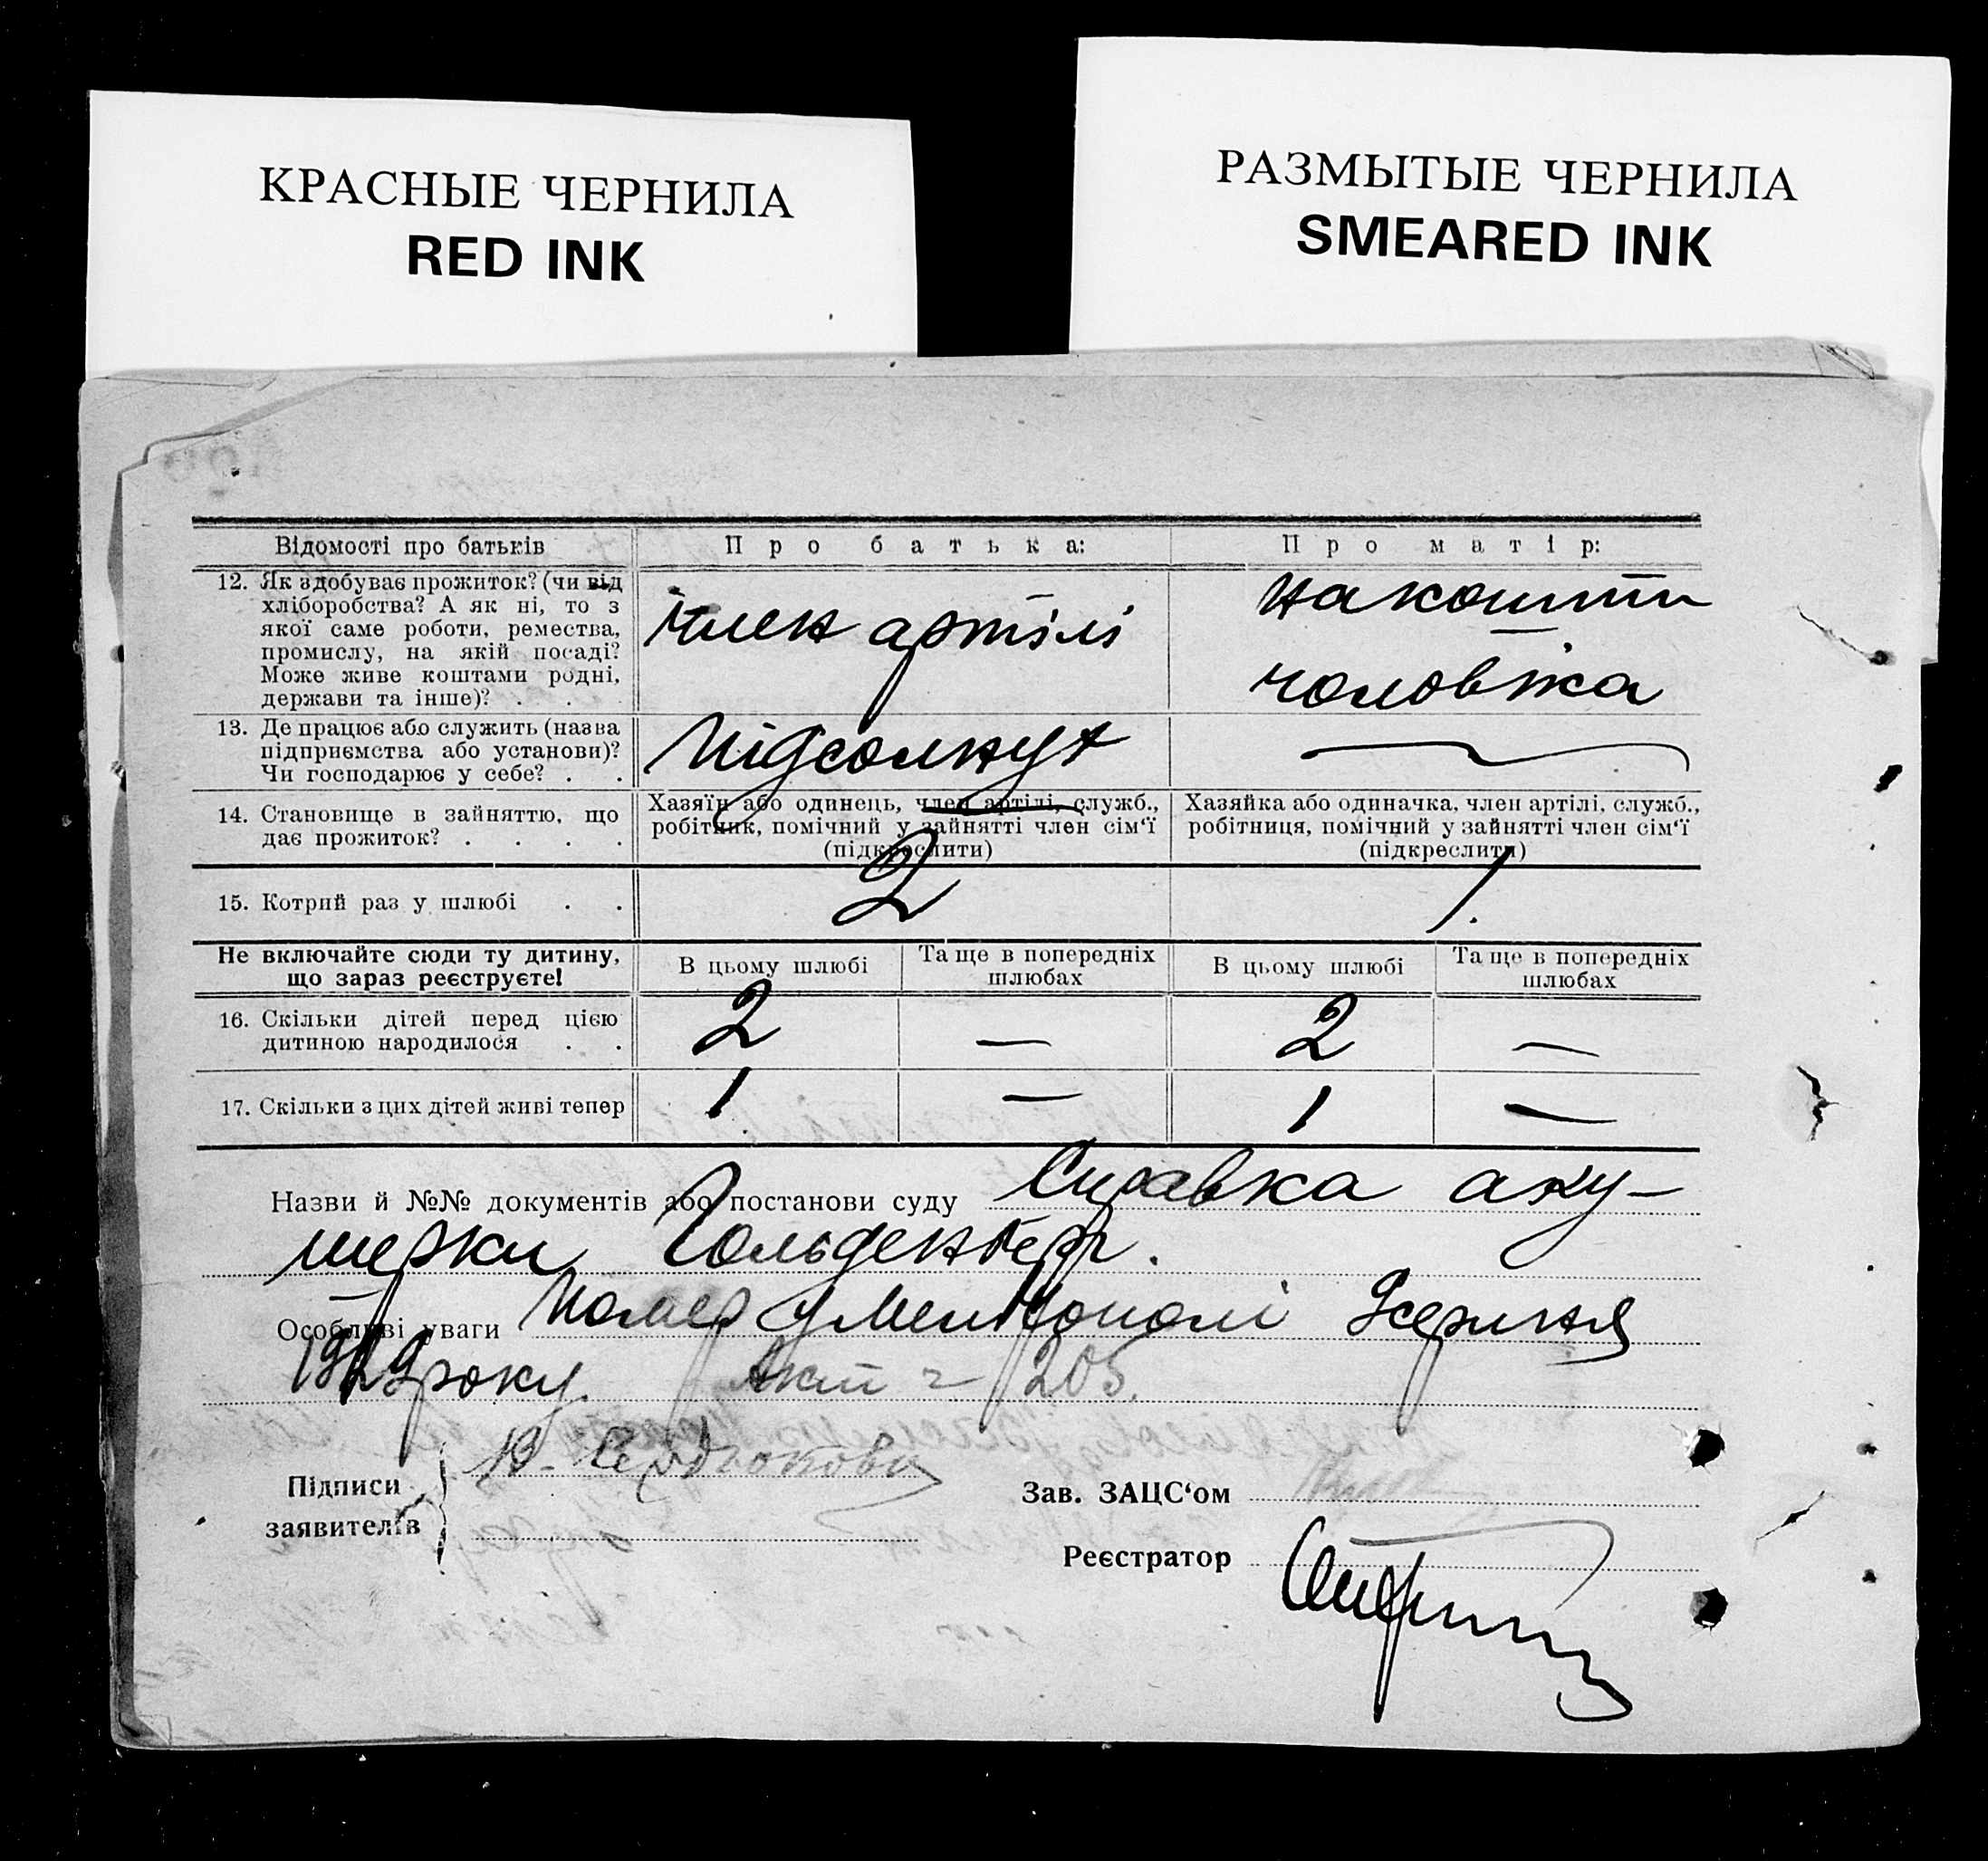 КРАСНЫЕ ЧЕРНИЛА
RED INK
РАЗМЫТЫЕ ЧЕРНИЛА
SMEARED INK
Відомості про батьків
Про батька:
Про матір:
12. Як здобуває прожиток? (чи від
хліборобства? А як ні, то з
якої саме роботи, ремества,
промислу, на якій посаді?
Може живе коштами родні,
держави та інше)? . .
член артілі
на кошти
чоловіка
13. Де працює або служить (назва
підприємства або установи)?
Чи господарює у себе? . .
14. Становище в зайняттю, що
дає прожиток? . . . .
Хазяїн або одинець, член артілі, служб.,
робітник, помічний у зайнятті член сім‘ї
(підкреслити)
Хазяйка або одиначка, член артілі, служб.,
робітниця, помічний у зайнятті член сім‘ї
(підкреслити)
15. Котрий раз у шлюбі . .
2
1.
Не включайте сюди ту дитину,
що зараз реєструєте!
В цьому шлюбі
Та ще в попередніх
шлюбах
В цьому шлюбі
Та ще в попередніх
шлюбах
16. Скільки дітей перед цією
дитиною народилося . .
2 — 2 —
17. Скільки з цих дітей живі тепер
1 — 1 —
Назви й №№ документів або постанови суду Справка аку-
шерки Гольденберг.
Особливі уваги Помер у Мелітополі серпня
1929 року. Акт ч 205.
Підписи
заявителів
Зав. ЗАЦС‘ом
Реєстратор